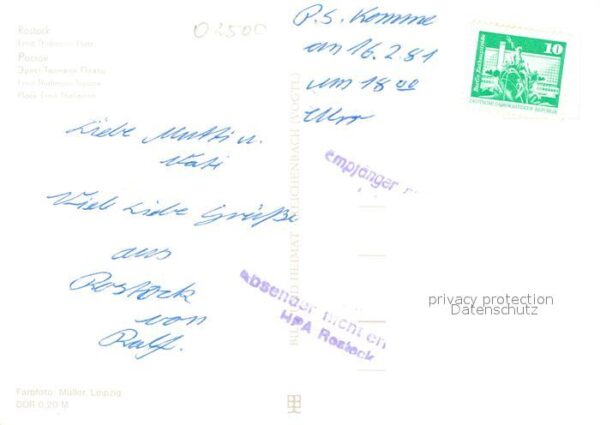 Rostock
Ernst-Thälmann-Platz
Росток
Эрнст Тельман Платц
Ernst Thälmann Square
Place Ernst Thälmann
O 2500
P.S. Komme
am 16.2.81
um 18 00
Uhr
10
DEUTSCHE DEMOKRATISCHE REPUBLIK
Liebe Mutti u.
Vati
Viele Liebe Grüße
aus
Rostock
von
Ralf.
Empfänger
Absender nicht
HPA Rostock
BILD UND HEIMAT REICHENBACH (VOGTL)
privacy protection
Datenschutz
Farbfoto: Müller, Leipzig
DDR 0,20 M